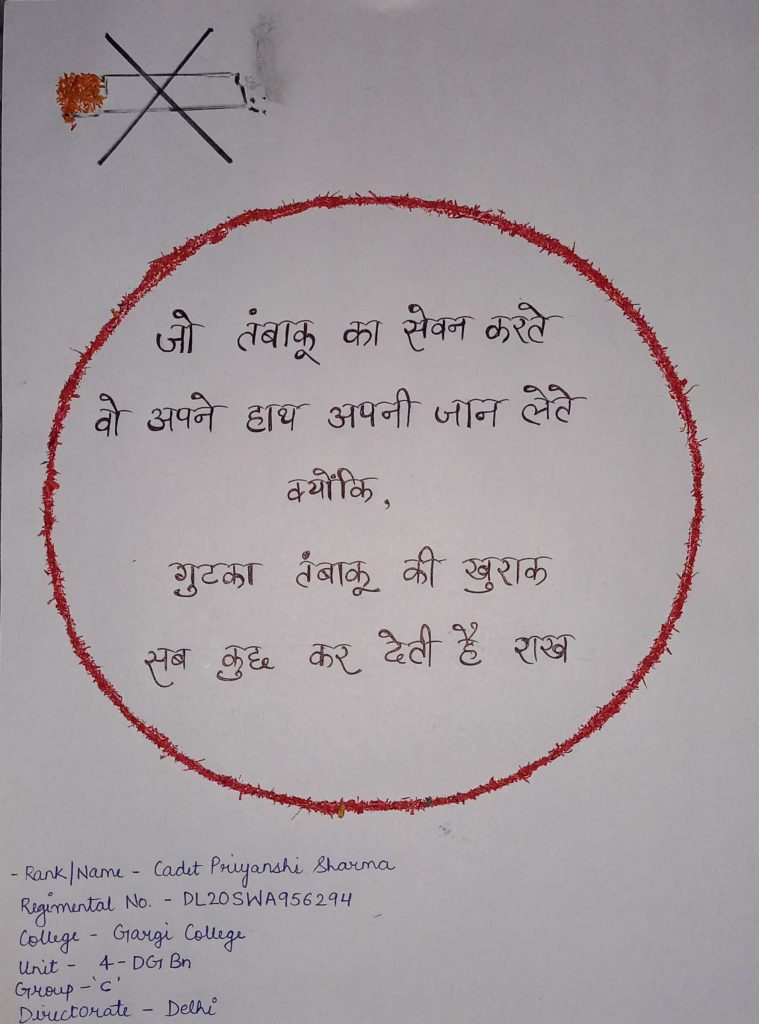 जो तंबाकू का सेवन करते
वो अपने हाथ अपनी जान लेते
क्योंकि,
गुटका तंबाकू की खुराक
सब कुछ कर देती है राख
- Rank/Name - Cadet Priyanshi Sharma
Regimental No. - DL20SWA956294
College - Gargi College
Unit - 4-DG Bn
Group - 'C'
Directorate - Delhi